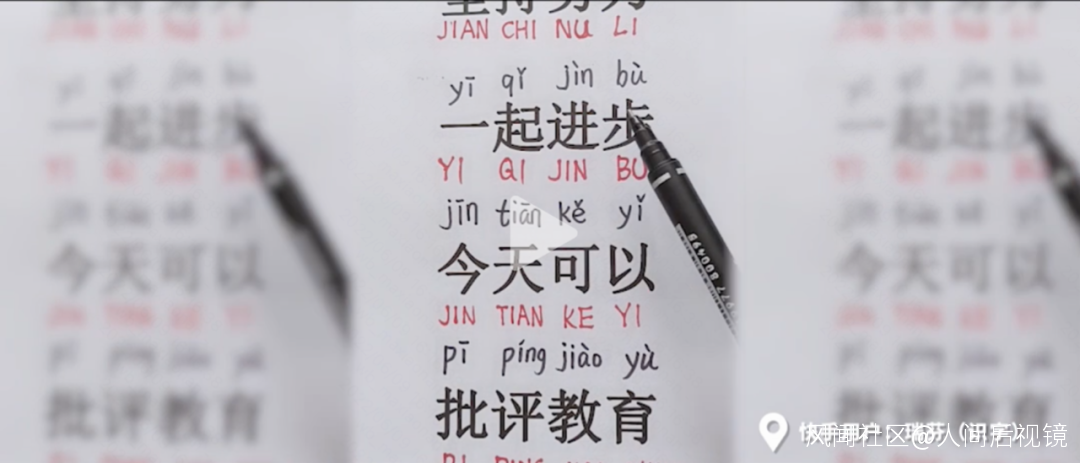 坚持努力
JIAN CHI NU LI
yī qǐ jìn bù
一起进步
YI QI JIN BU
jīn tiān kě yǐ
今天可以
JIN TIAN KE YI
pī píng jiào yù
批评教育
风闻社区@人间后视镜